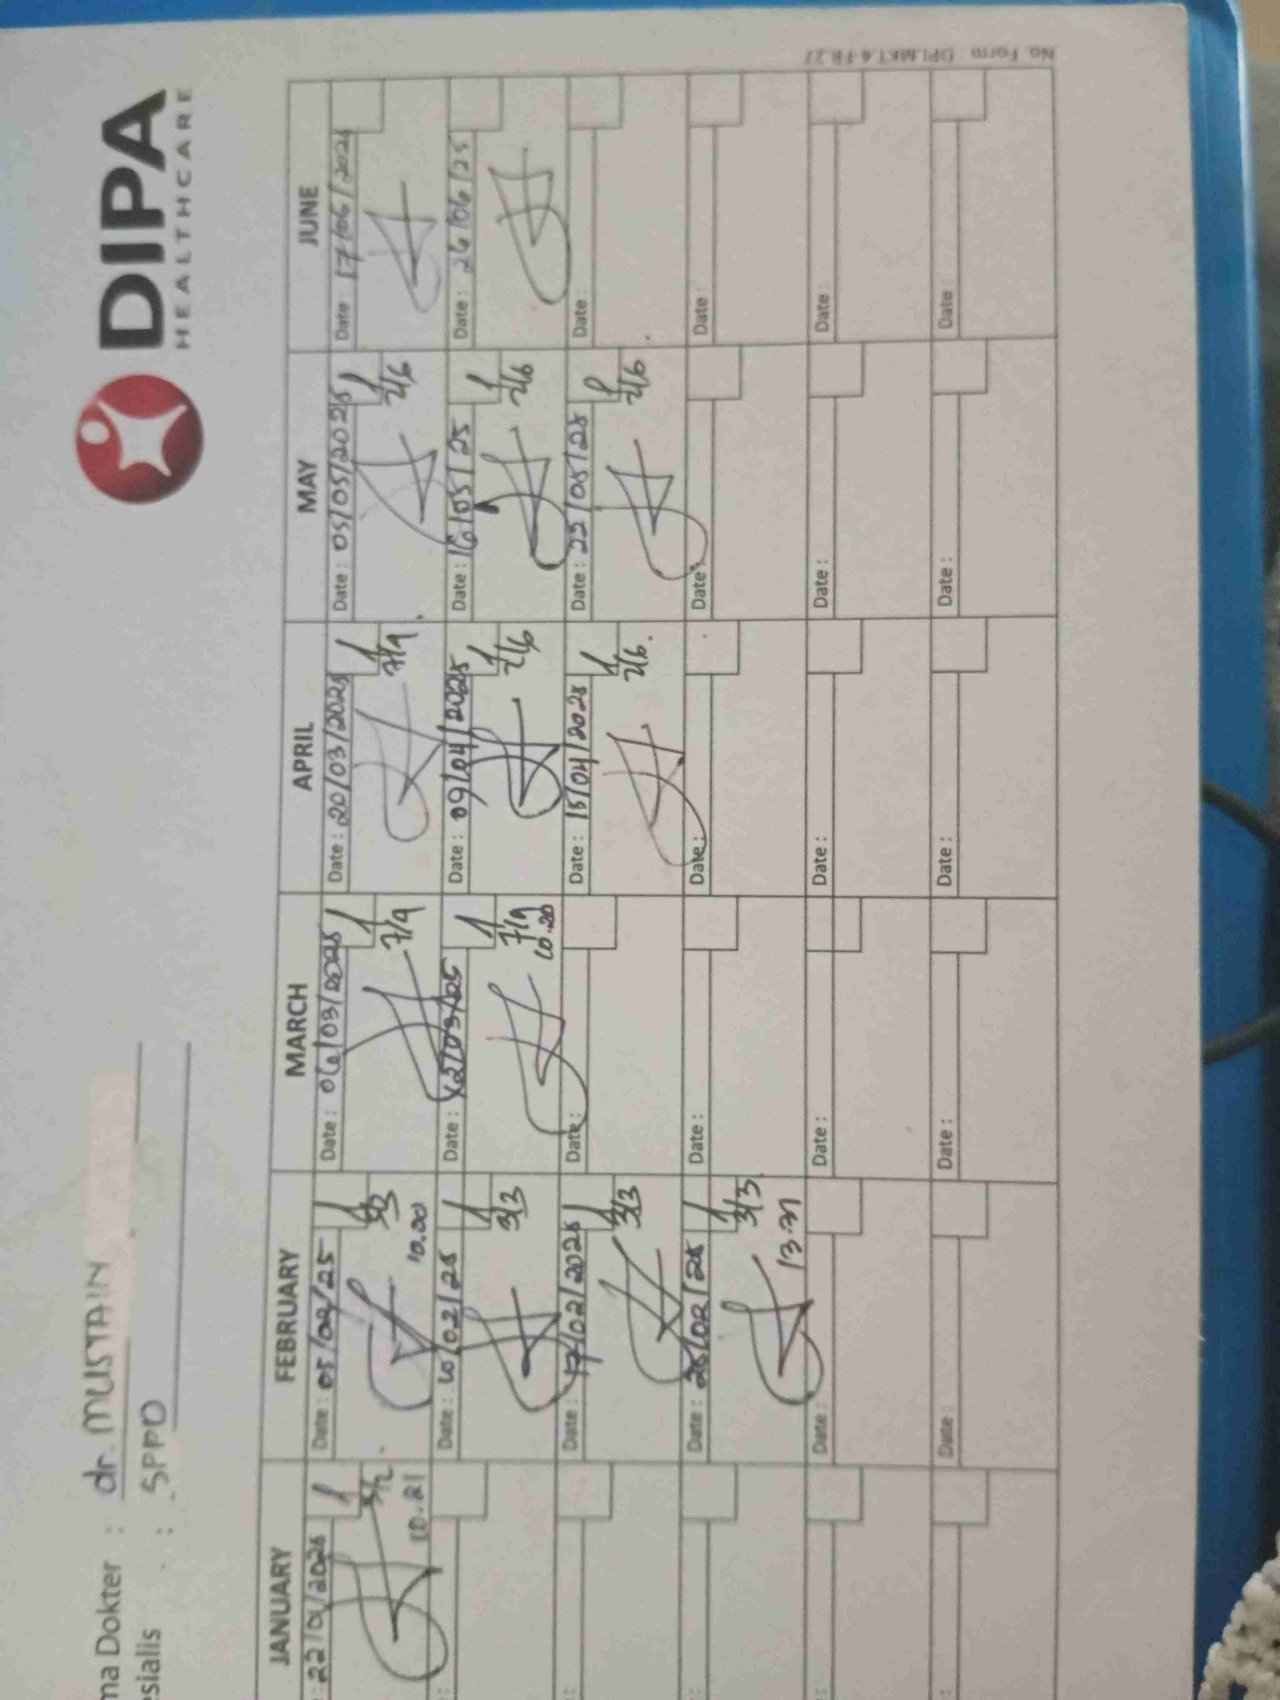 DIPA
HEALTHCARE
ma Dokter : dr. MUSTAIN
esialis : SPPD
JANUARY FEBRUARY MARCH APRIL MAY JUNE
: 22/01/2025 1 Date : 05/02/25 1 Date : 06/03/2025 1 Date : 20/03/2025 1 Date : 05/05/2025 1 Date : 17/06/2025
5/2 3/3 7/9 7/9 2/6
10.21 10.00
: Date : 10/02/25 1 Date : 12/03/25 1 Date : 09/04/2025 1 Date : 16/05/25 1 Date : 26/06/25
3/3 7/9 2/6 2/6
10.20
: Date : 17/02/2025 1 Date : Date : 15/04/2025 1 Date : 22/05/25 Date :
3/3 2/6. 2/6
: Date : /02/25 1 Date : Date : Date : Date :
3/3
13.
: Date : Date : Date : Date : Date :
: Date : Date : Date : Date : Date
No. Form DPI.MKT.6-FR.27